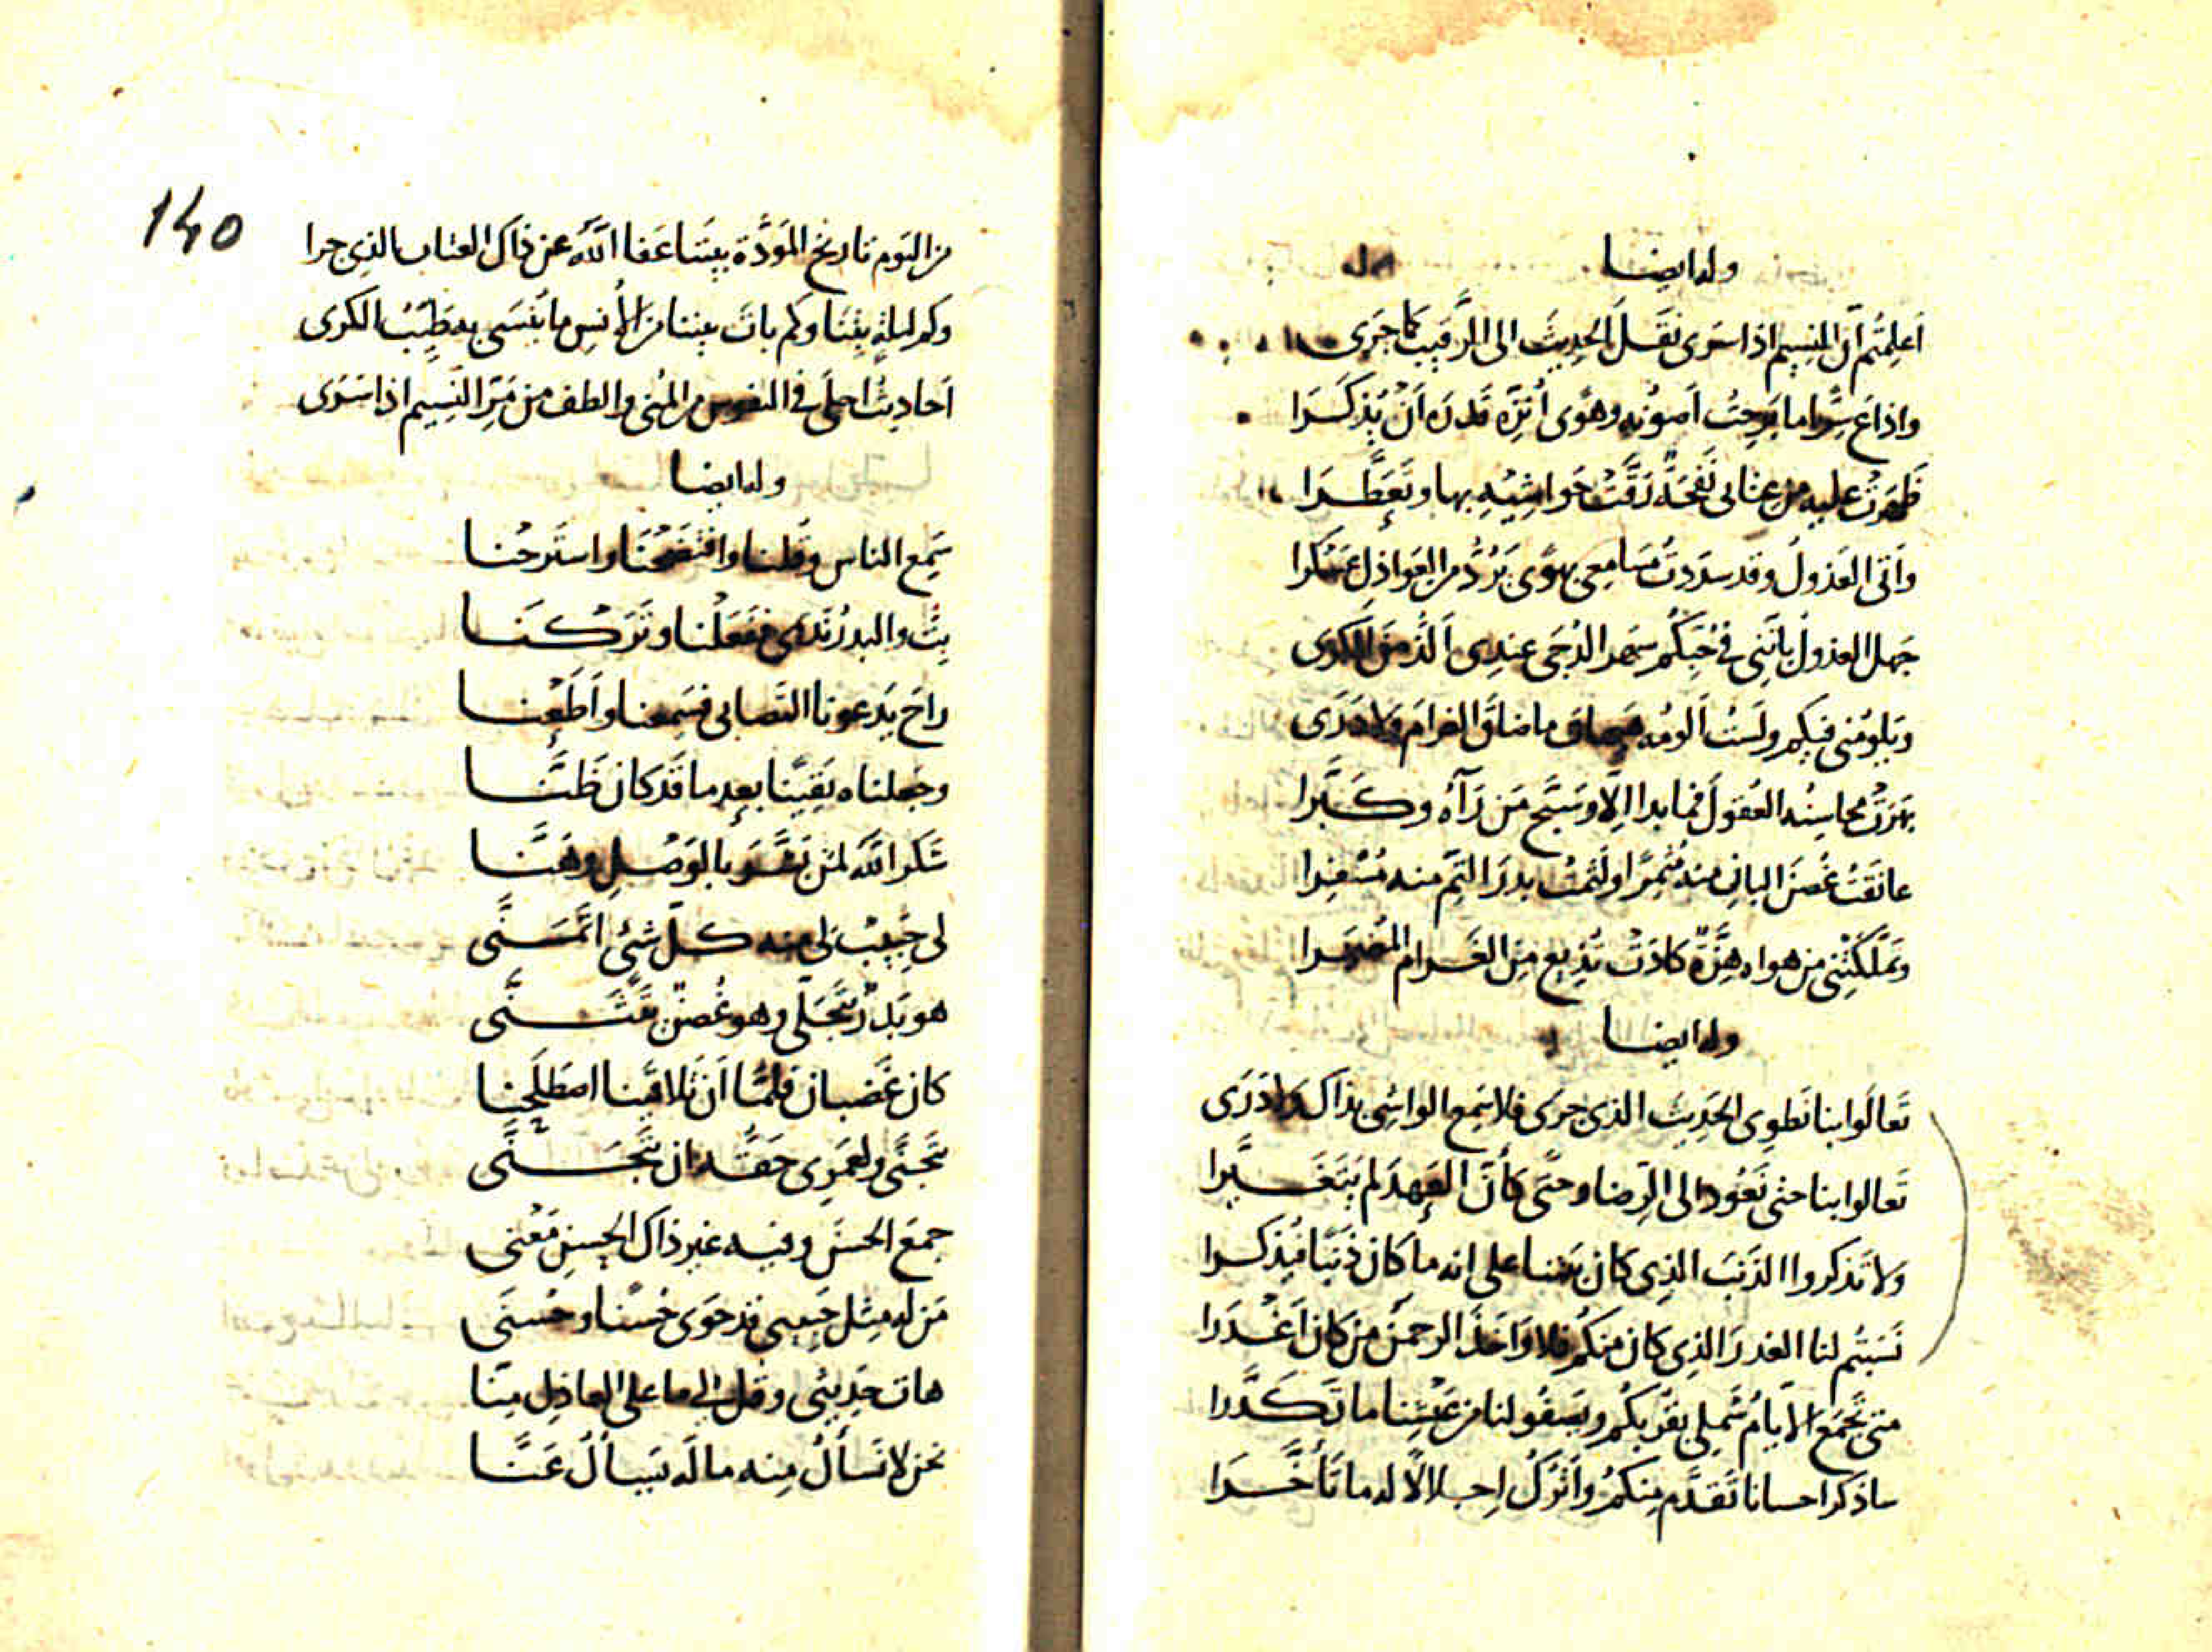 وله ايضا
اَعلِمتُم اَنَّ النسِيم اذا سَرى نَقَلَ الحدِيثَ الى الرَّقيب كما جَرى
واذاعَ سِرًّا ما بَرِحتُ اَصونُه وهوًى اُنَزِّه قَدرَه اَنْ يُذكَرَا
ظَهرَت عليه من عتابى نَفحَةٌ رَقَّتْ حَواشِيْهِ بها وتَعَطَّرا
واَتى العَذولُ وقد سدَدتُ مَسَامِعى بهوًى يَرُدُّ من العَواذِل عَسْكرا
جَهِل العذولُ باَنَّنى فى حُبِّكُم سَهر الدُجَى عندِى اَلَذُّ من الكَرى
ويَلومُنى فيكم ولَستُ اَلومُه هَيهاتَ ما ذاقَ الغرامَ ولا دَرَى
بهَرَتْ محاسِنُه العُقولَ فما بدا الّا وسَبَّح مَن رَآهُ وكَبَّرا
عانَقتُ غُصنَ البانِ منه مُثمِرًا ولَثمتُ بدرَ التِمّ منه مُسْفِرا
وتَملَّكَتْنى من هواه هِزَّةٌ كادَت تُذِيع مِنَ الغَرام المُضمَرا
وله ايضا
تَعالَوا بنا نَطوِى الحَدِيثَ الذى جرَى فلا سَمِع الواشِى بذاكَ ولا دَرَى
تَعالوا بنا حتى نَعُودَ الى الرِضا وحتى كَأنَّ العَهدَ لم يَتَغَيَّرا
ولا تَذكروا الذَنبَ الذِى كان بَيننا على انه ما كَان ذَنبًا فيُذكرا
نَسَبتُم لنا الغدرَ الذِى كان منكُم فلا وَاخَذَ الرحمنُ من كان اَغْدَرَا
متى تَجمَعُ الاَيّامُ شَملِى بقُربِكُم ويَصفُو لنا من عَيْشِنا ما تَكَدَّرا
ساذكر احسانا تقَدَّم مِنكُمُ واَترُكُ اِجلالًا له ما تَأخَّرَا
140
من اليَوم تاريخُ المَودَّة بينَنا عَفا اللَّهُ عن ذاك العتاب الذِى جرا
وكم ليلةٍ بِتْنَا وكم باتَ بيننا من الأُنسِ ما يُنسَى به طَيِّبُ الكَرى
اَحادِيثُ احلَى فى النفوس من المُنى والطف من مَرِّ النَّسِيم اذا سَرَى
وله ايضا
سَمِع الناس وقُلنا وافْتَضَحْنَا واستَرحْنا
بتُّ والبدرُ نَديمى ففَعَلْنا وتَرَكْنَا
راحَ يَدعونا التَّصابى فسَمِعنا واَطَعْنا
وجَعلناه يَقِيْنًا بعدِ ما قَدْ كان ظَنَّا
شَكَر اللَّه لمَن بَشَّرَ بالوَصْلِ وهَنَّا
لى حَبِيبٌ لى منه كلّ شئى اتَمَنَّى
هو بَدْرٌ يتَجَلّى وهو غُصنٌ يتَثَنَّى
كان غَضبان فلمّا اَن تلاقَينا اصطَلَحْنا
يتَجَنّى ولعَمرِى حَقَّه ان يتَجَنَّى
جمعَ الحسنَ وفيه غير ذاك الحسنِ مَعْنى
مَن له مِثل حَبِيبى قد حَوَى حُسنًا وحُسنَى
هات حَدِيثى وقل لى ما على العاذِل مِنّا
نحن لا نَسأَلُ مِنه ما لَه يَسأَلُ عَنَّا